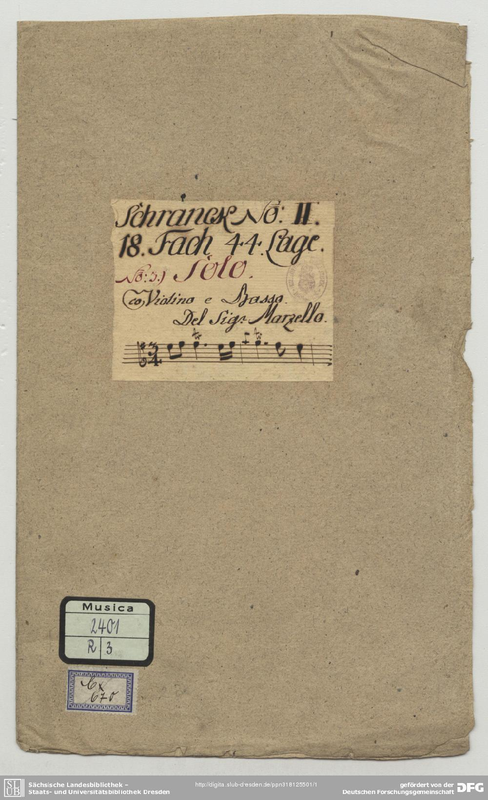 Schranck No: II.
18. Fach 44. Lage.
No: 3.) Solo.
co Violino e Basso.
Del Sigr. Marzello.
Musica
2401
R 3
Cx
670
SLUB
Sächsische Landesbibliothek –
Staats- und Universitätsbibliothek Dresden
http://digital.slub-dresden.de/ppn318125501/1
gefördert von der
Deutschen Forschungsgemeinschaft
DFG